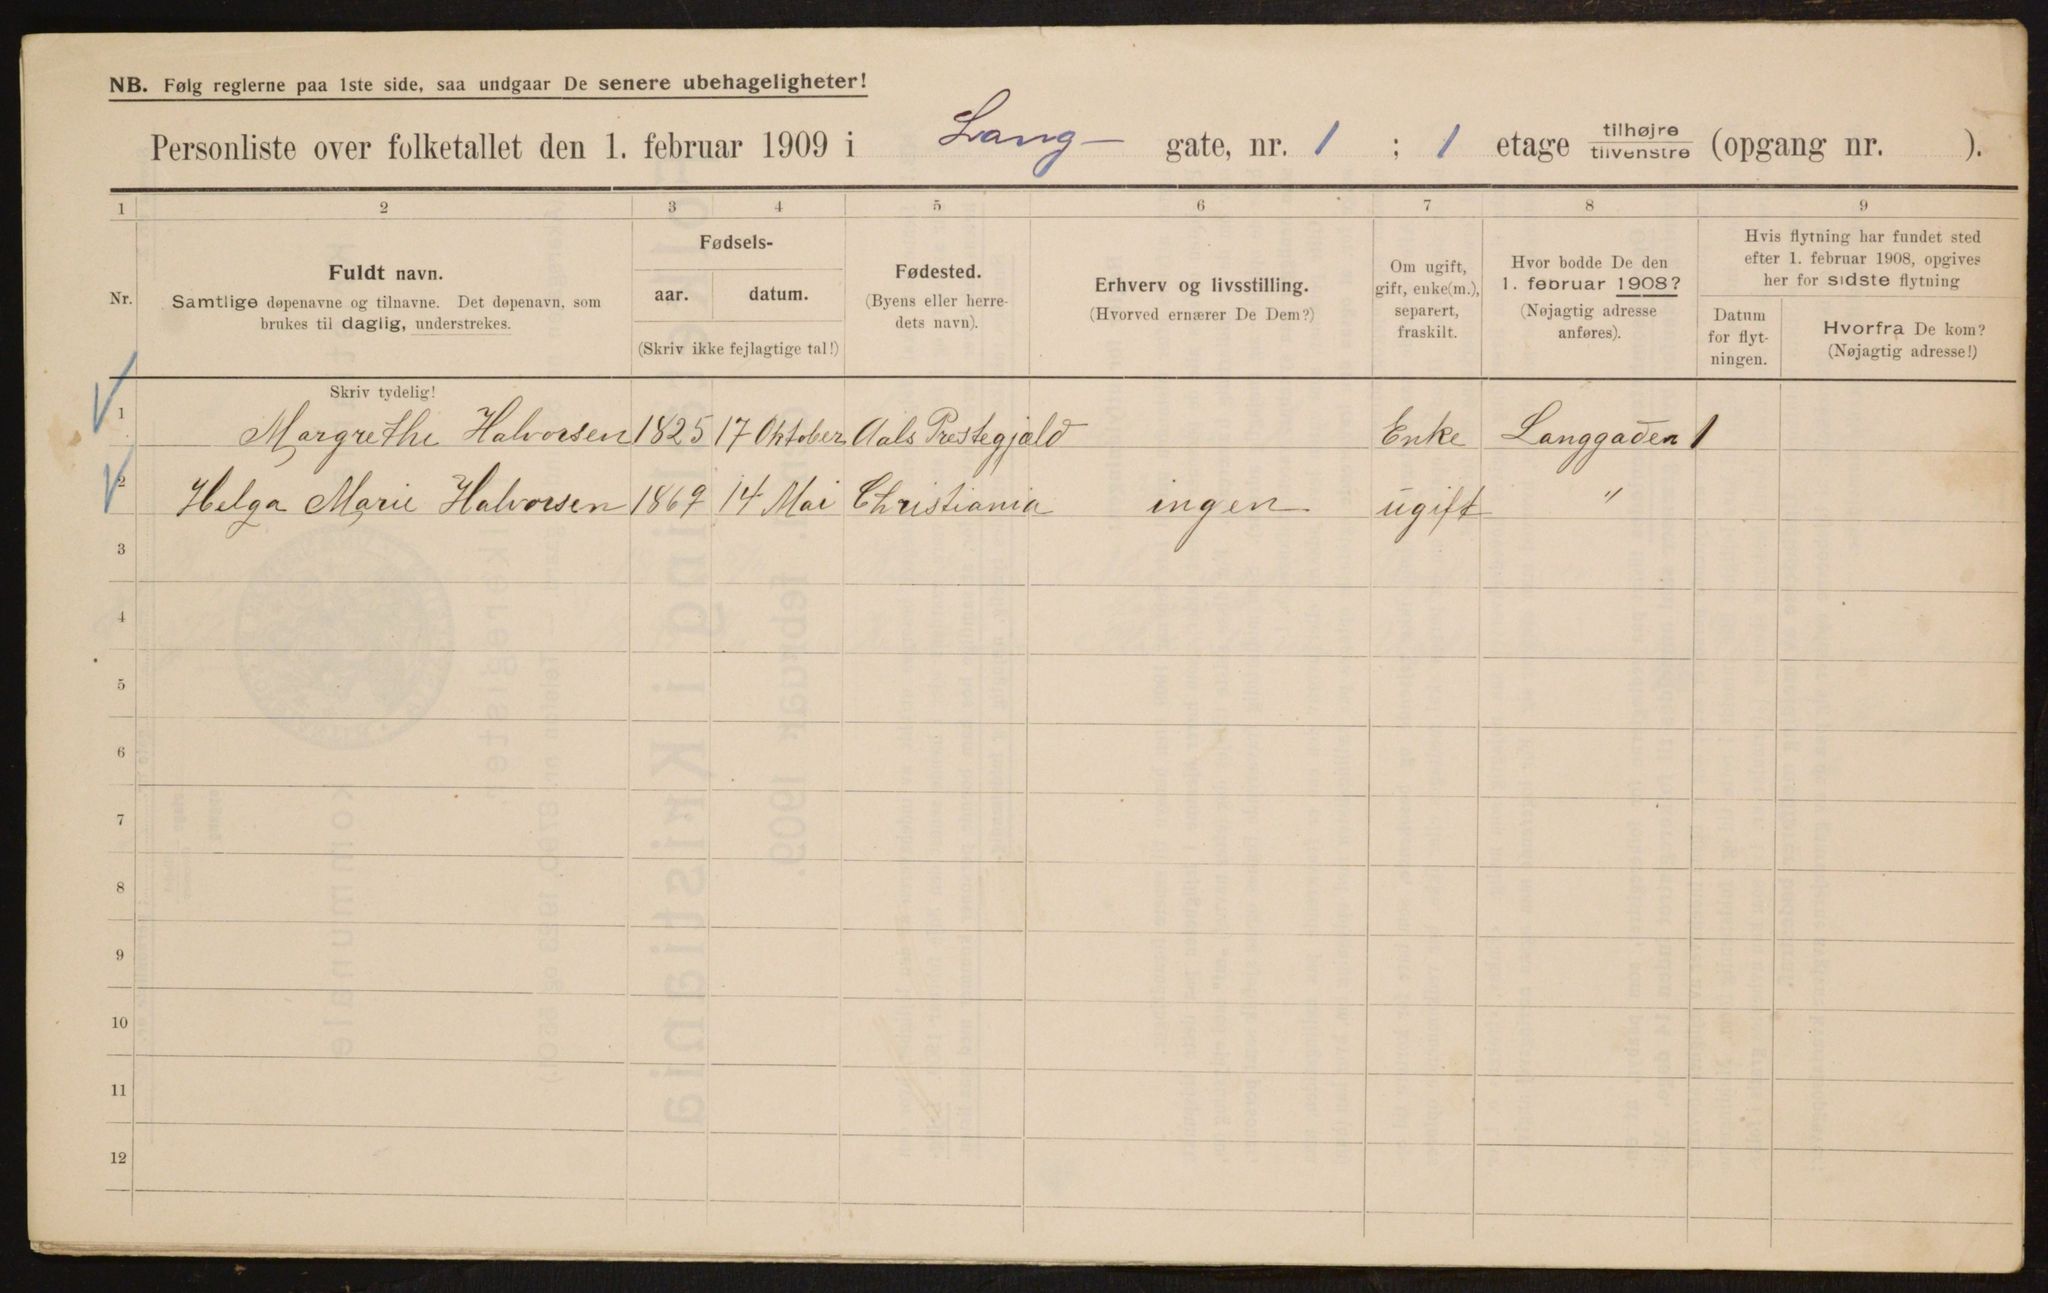 NB. Følg reglerne paa 1ste side, saa undgaar De senere ubehageligheter!
Personliste over folketallet den 1. februar 1909 i Lang- gate, nr. 1 ; 1 etage tilhøjre / tilvenstre (opgang nr. ).
1 2 3 4 5 6 7 8 9
Nr.
Fuldt navn.
Samtlige døpenavne og tilnavne. Det døpenavn, som
brukes til daglig, understrekes.
Fødsels-
aar. datum.
(Skriv ikke fejlagtige tal!)
Fødested.
(Byens eller herre-
dets navn).
Erhverv og livsstilling.
(Hvorved ernærer De Dem?)
Om ugift,
gift, enke(m.),
separert,
fraskilt.
Hvor bodde De den
1. februar 1908?
(Nøjagtig adresse
anføres).
Hvis flytning har fundet sted
efter 1. februar 1908, opgives
her for sidste flytning
Datum
for flyt-
ningen.
Hvorfra De kom?
(Nøjagtig adresse!)
Skriv tydelig!
1 Margrethe Halvorsen 1825 17 Oktober Aals Prestegjæld Enke Langgaden 1
2 Helga Marie Halvorsen 1869 14 Mai Christiania ingen ugift "
3
4
5
6
7
8
9
10
11
12